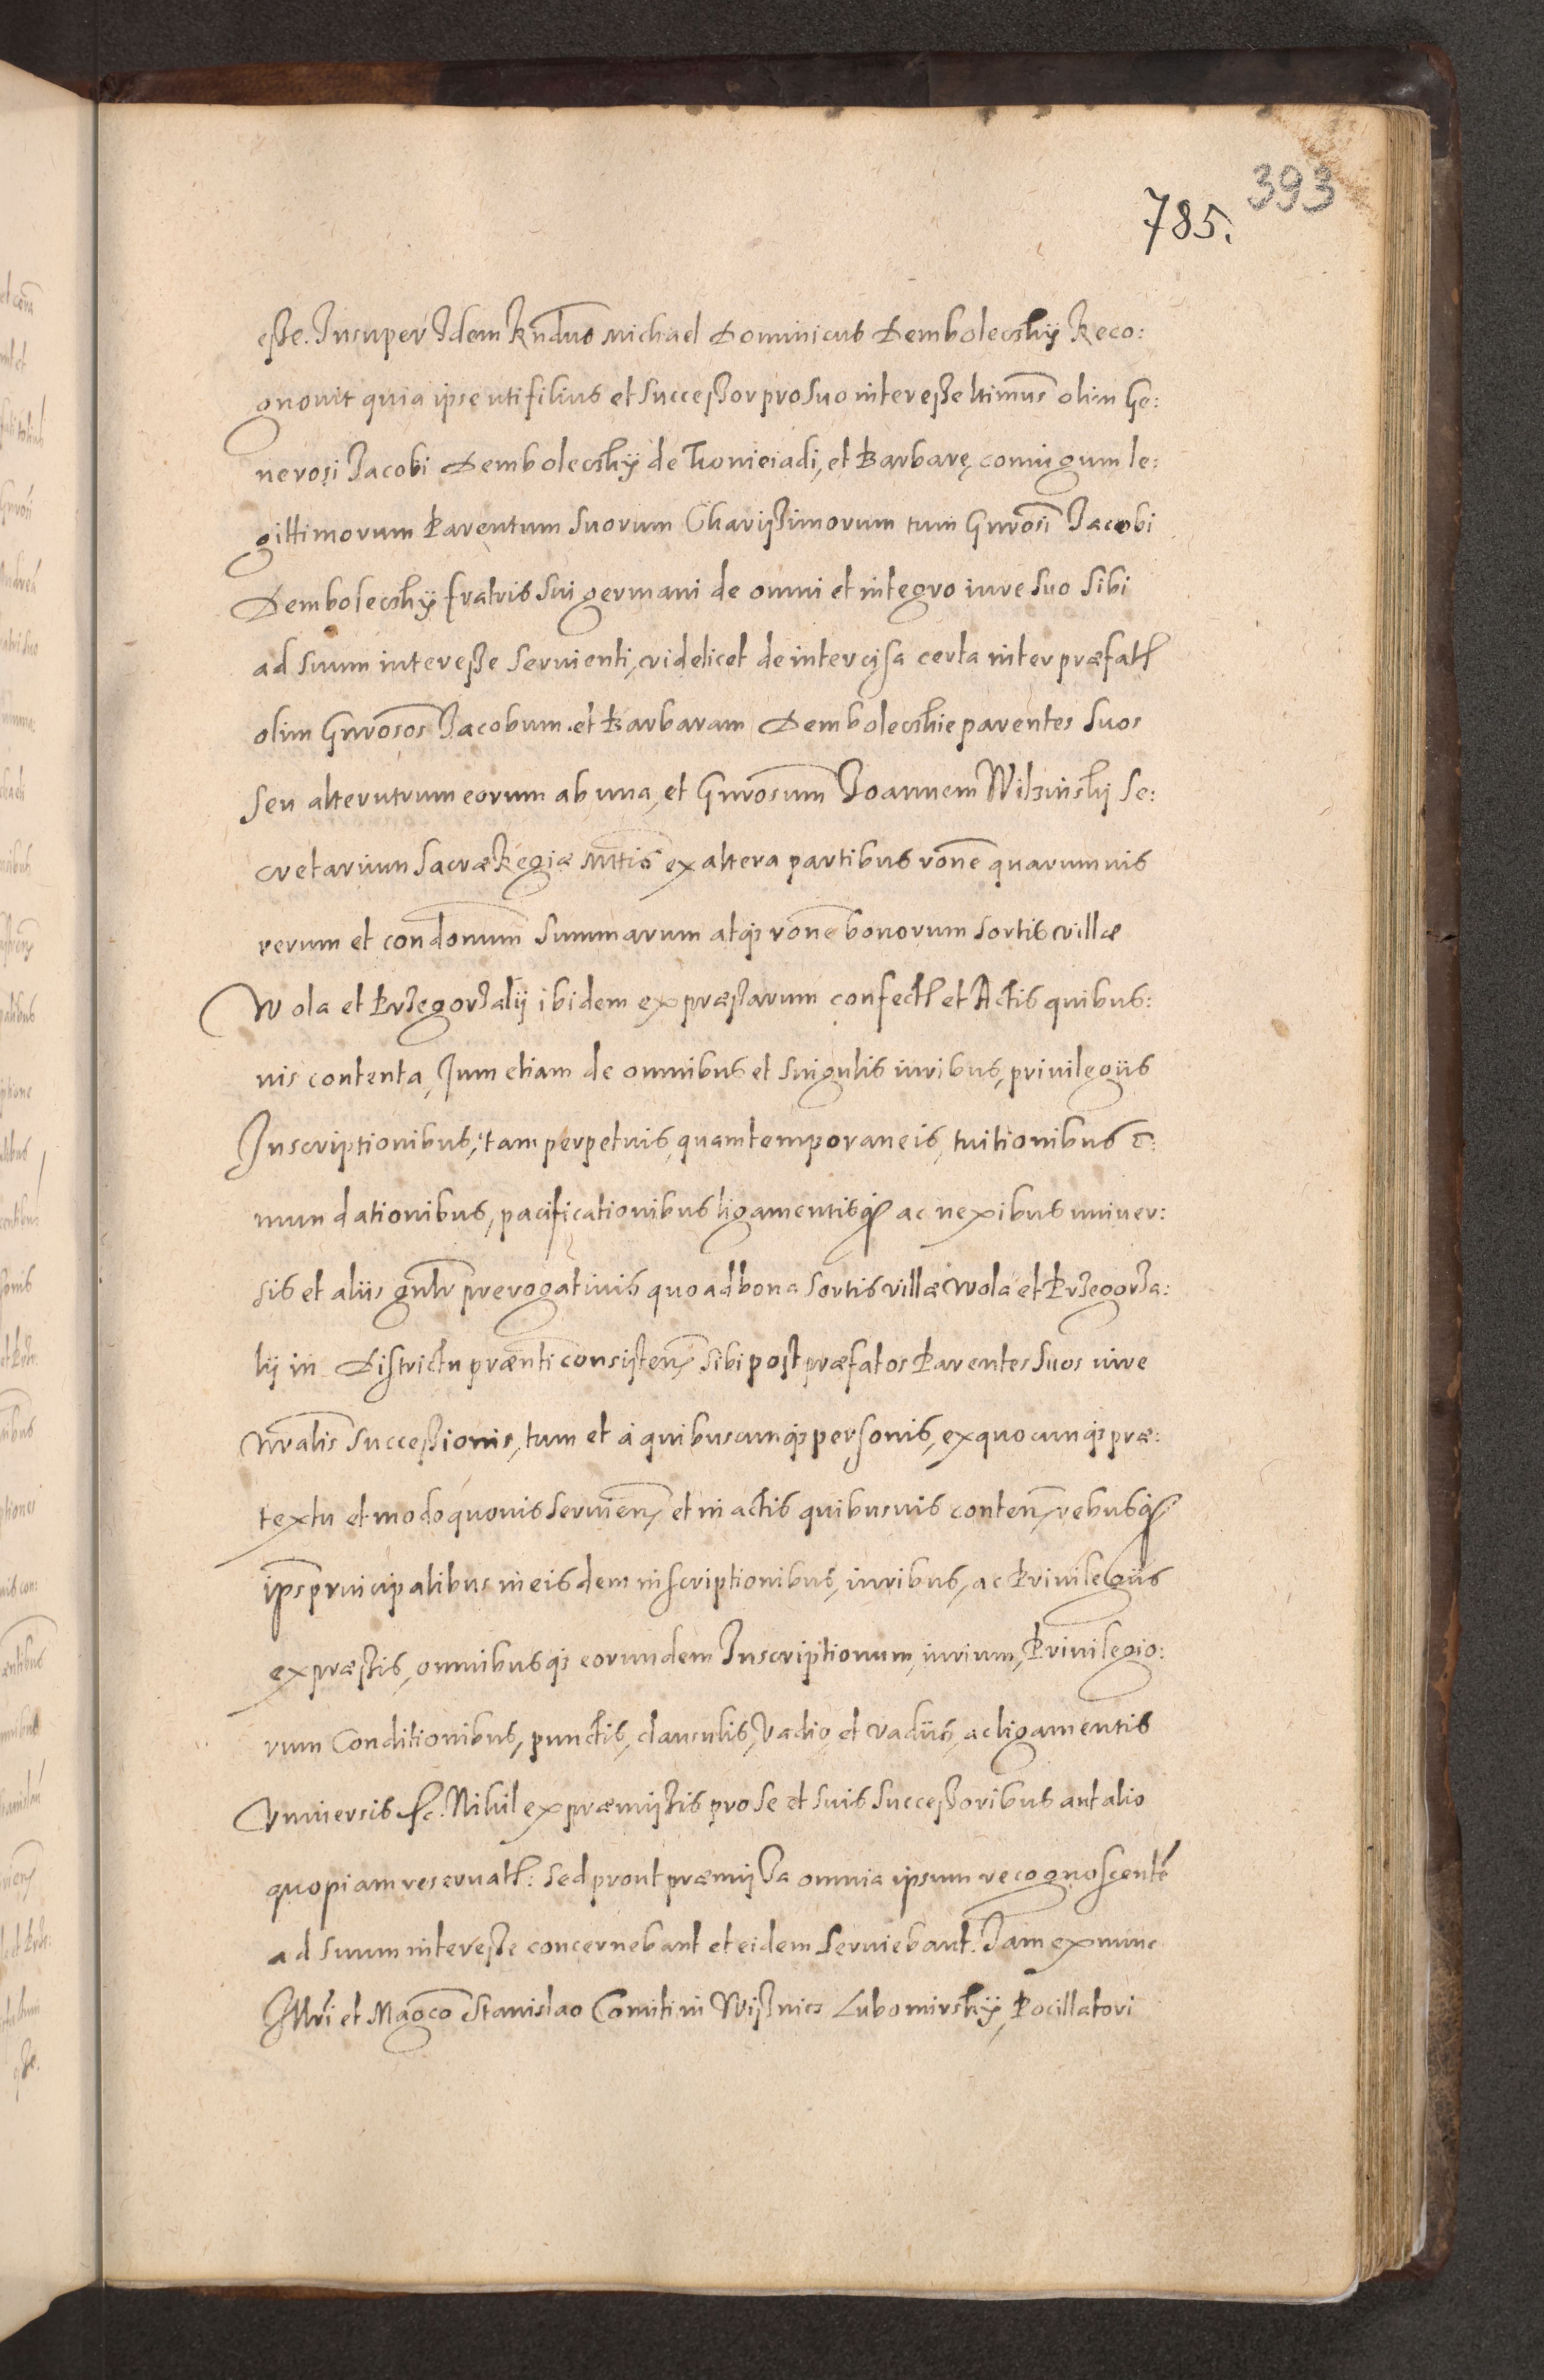 393
785.
esse. Insuper Idem Rndus Michael Dominicus Dembolecskÿ Reco:
gnouit quia ipse uti filius et Successor pro Suo interesse ltimus olim Ge:
nerosi Jacobi Dembolecskÿ de Konieiadi, et Barbarę coniugum le:
gittimorum Parentum Suorum Charissimorum tum Gnrosi Jacobi
Dembolecskÿ fratris Sui germani de omni et integro iure Suo Sibi
ad Suum interesse Seruienti, videlicet de intercisa certa inter præfatt
olim Gnrosos Jacobum et Barbaram Dembolecskie parentes Suos
Seu alterutrum eorum ab una, et Gnrosum Joannem Wilzinskj Se:
cretarium Sacræ Regiæ Mttis ex altera partibus rone quarumuis
rerum et condonum Summarum atqꝫ rone bonorum Sortis villæ
Wola et Przegorzalij ibidem expræssarum confectt et Actis quibus:
uis contenta, Jum etiam de omnibus et Singulis iuribus, priuilegiis
Inscriptionibus, tam perpetuis, quam temporaneis, tuitionibus e:
mundationibus, pacificationibus ligamentisqꝫ ac nexibus uniuer:
sis et aliis gnlr prerogatiuis quo ad bona Sortis villæ Wola et Przegorza:
lij in Districtu prænti consisten Sibi post præfatos Parentes Suos iure
Nralis Successionis, tum et á quibuscunqꝫ personis, ex quocunqꝫ præ:
textu et modo quouis Seruien et in actis quibusuis conten rebusqꝫ
ips principalibus in eisdem inscriptionibus, iuribus, ac Priuilegiis
expræssis, omnibusqꝫ eorundem Inscriptionum, iurium, Priuilegio:
rum Conditionibus, punctis, clausulis, Vadio et vadiis, ac ligamentis
Vniuersis &c. Nihil ex præmissis pro Se et Suis Successoribus aut alio
quopiam reseruatt: Sed prout præmissa omnia ipsum recognoscente
ad Suum interesse concernebant et eidem Seruiebant. Jam ex nunc
Illri et Magco Stanislao Comiti in Wissnicz Lubomirskÿ, Pocillatori